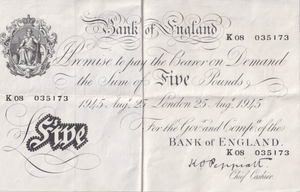 Bank of England
K08 035173
I Promise to pay the Bearer on Demand
the Sum of Five Pounds
K08 035173
1945 Aug. 25 London 25 Aug. 1945
For the Gov.r and Comp.a of the
Five
K08 035173
BANK OF ENGLAND.
K O Peppiatt
Chief Cashier.